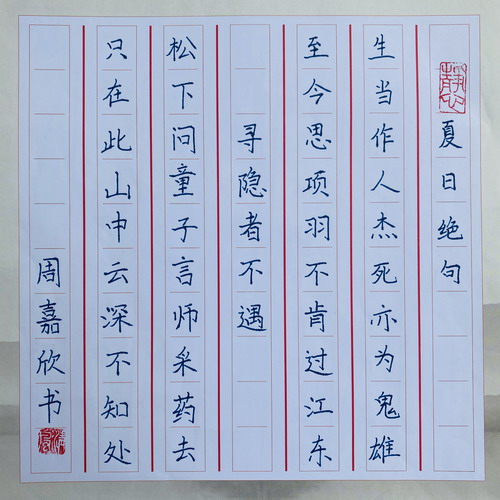 静心
夏日绝句
生当作人杰死亦为鬼雄
至今思项羽不肯过江东
寻隐者不遇
松下问童子言师采药去
只在此山中云深不知处
周嘉欣书